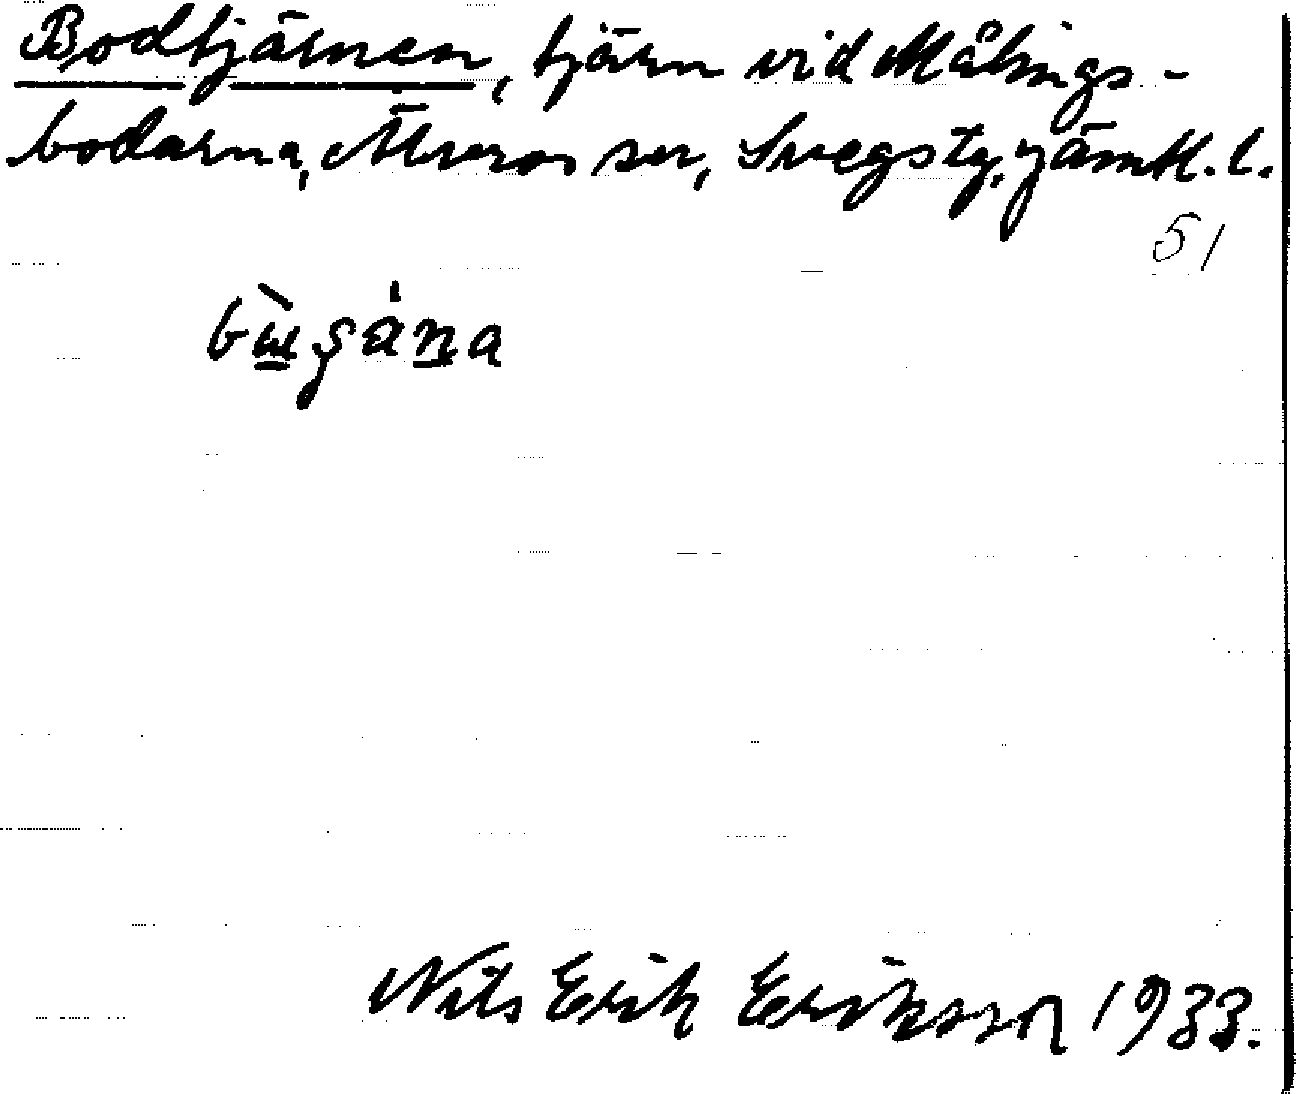 Bodtjärnen, tjärn vid Målings-
bodarna, Älvros sn, Svegs tg, Jämtl. l.
51
Nils Erik Eriksson 1933.